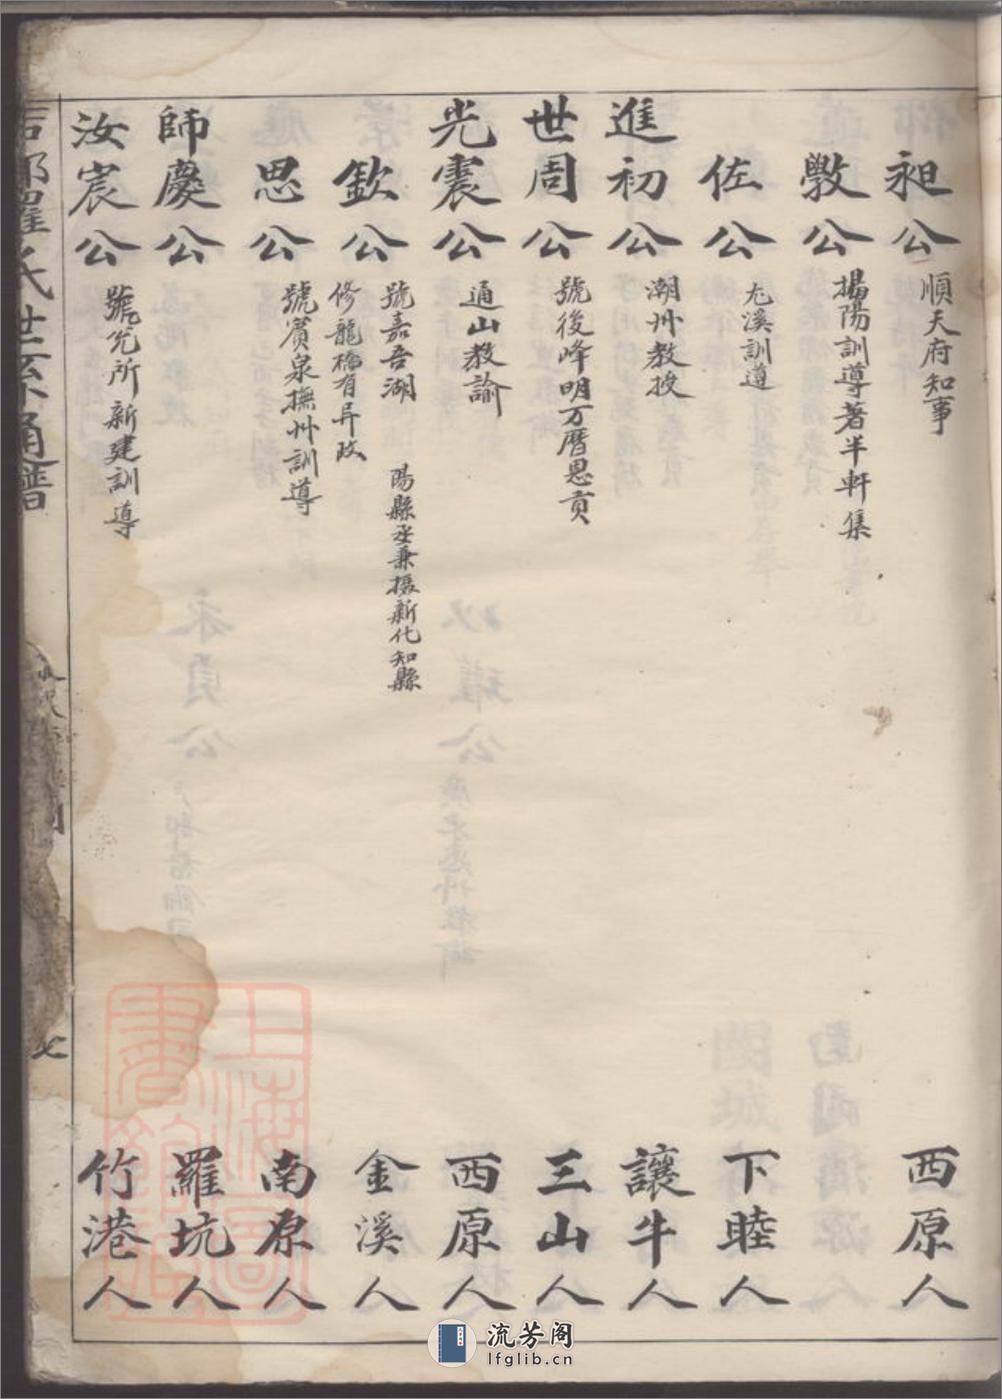 昶公 順天府知事 西原人
斆公 揭陽訓導著半軒集
佐公 尤溪訓導 下睦人
進初公 潮州教授 讓牛人
世周公 號後峰明万曆恩貢 三山人
光震公 通山教諭 西原人
欽公 號嘉吾湖陽縣丞兼攝新化知縣
修龍橋有异政 金溪人
思公 號賓泉撫州訓導 南原人
師慶公 羅坑人
汝宸公 號兌所新建訓導 竹港人
羅氏世系通譜
七
上海圖書館藏
流芳阁
lfglib.cn